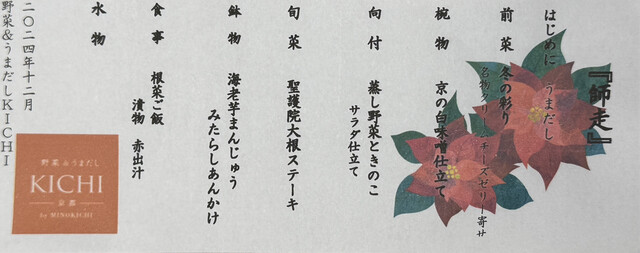 『師走』
はじめに うまだし
前菜 冬の彩り
名物クリームチーズゼリー寄せ
椀物 京の白味噌仕立て
向付 蒸し野菜ときのこ
サラダ仕立て
旬菜 聖護院大根ステーキ
鉢物 海老芋まんじゅう
みたらしあんかけ
食事 根菜ご飯
漬物 赤出汁
水物
二〇二四年十二月
野菜&うまだしKICHI
野菜&うまだし
KICHI
京都
by MINOKICHI